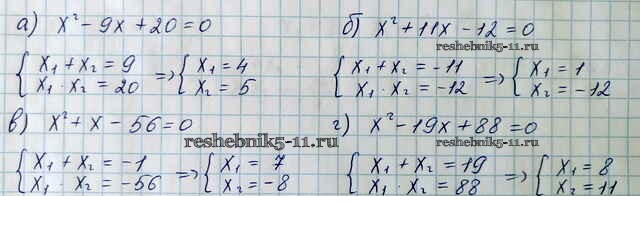 а) x² - 9x + 20 = 0
{ x₁ + x₂ = 9
x₁ · x₂ = 20 => { x₁ = 4
x₂ = 5
б) x² + 11x - 12 = 0
reshebnik5-11.ru
{ x₁ + x₂ = -11
x₁ · x₂ = -12 => { x₁ = 1
x₂ = -12
в) x² + x - 56 = 0
reshebnik5-11.ru
{ x₁ + x₂ = -1
x₁ · x₂ = -56 => { x₁ = 7
x₂ = -8
г) x² - 19x + 88 = 0
reshebnik5-11.ru
{ x₁ + x₂ = 19
x₁ · x₂ = 88 => { x₁ = 8
x₂ = 11